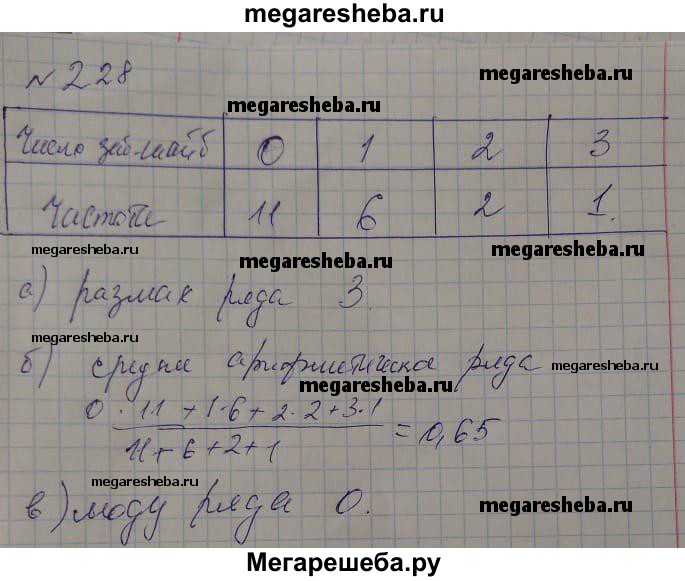 megaresheba.ru
№ 228
megaresheba.ru
megaresheba.ru
Число заб. шайб 0 1 2 3
Частота 11 6 2 1.
megaresheba.ru
megaresheba.ru
megaresheba.ru
а) размах ряда 3.
б) средне арифметическое ряда
megaresheba.ru
megaresheba.ru
megaresheba.ru
0·11+1·6+2·2+3·1
11+6+2+1
= 0,65
megaresheba.ru
в) моду ряда 0.
megaresheba.ru
Мегарешеба.ру